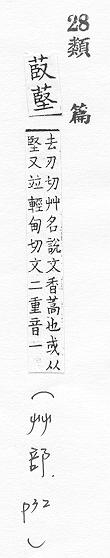 28類
篇
菣䕙
去刃切艸名說文香蒿也或从
堅又竝輕甸切文二重音一
(艸部.
p32)